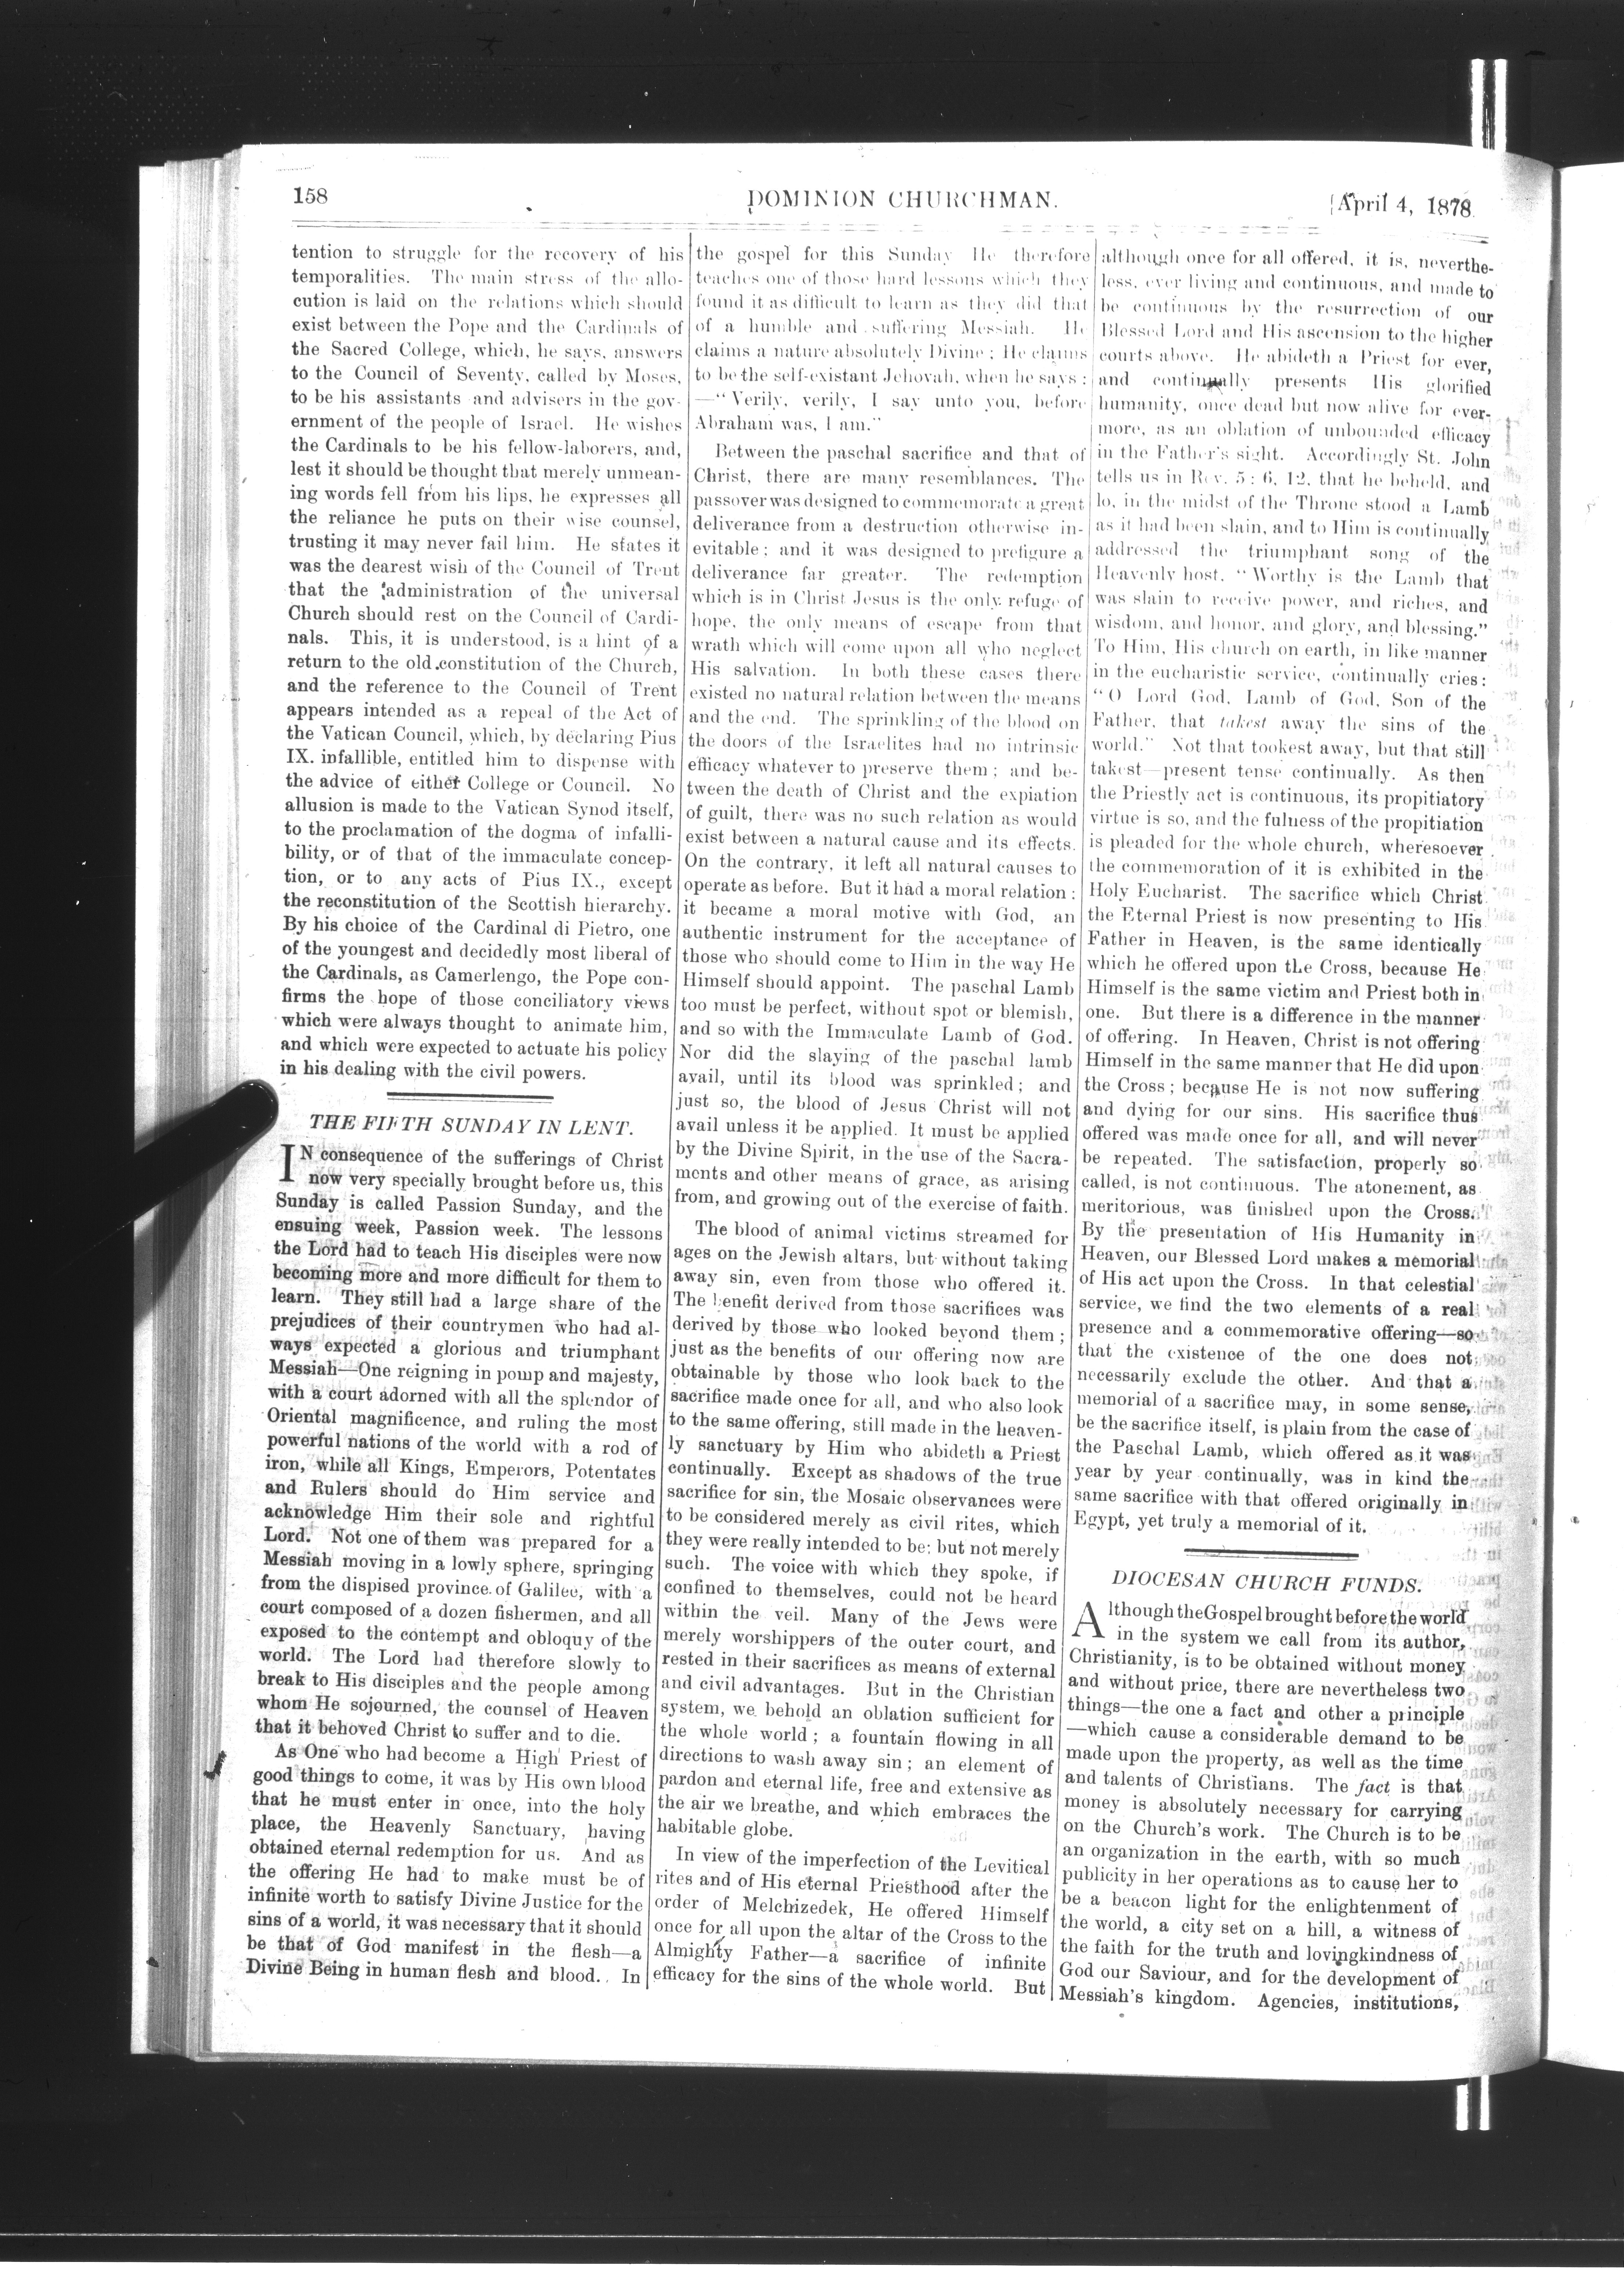 158
DOMINION CHURCHMAN.
April 4, 1878
tention to struggle for the recovery of his
temporalities. The main stress of the allo-
cution is laid on the relations which should
exist between the Pope and the Cardinals of
the Sacred College, which, he says, answers
to the Council of Seventy, called by Moses,
to be his assistants and advisers in the gov-
ernment of the people of Israel. He wishes
the Cardinals to be his fellow-laborers, and,
lest it should be thought that merely unmean-
ing words fell from his lips, he expresses all
the reliance he puts on their wise counsel,
trusting it may never fail him. He states it
was the dearest wish of the Council of Trent
that the administration of the universal
Church should rest on the Council of Cardi-
nals. This, it is understood, is a hint of a
return to the old constitution of the Church,
and the reference to the Council of Trent
appears intended as a repeal of the Act of
the Vatican Council, which, by declaring Pius
IX. infallible, entitled him to dispense with
the advice of either College or Council. No
allusion is made to the Vatican Synod itself,
to the proclamation of the dogma of infalli-
bility, or of that of the immaculate concep-
tion, or to any acts of Pius IX., except
the reconstitution of the Scottish hierarchy.
By his choice of the Cardinal di Pietro, one
of the youngest and decidedly most liberal of
the Cardinals, as Camerlengo, the Pope con-
firms the hope of those conciliatory views
which were always thought to animate him,
and which were expected to actuate his policy
in his dealing with the civil powers.
THE FIFTH SUNDAY IN LENT.
IN consequence of the sufferings of Christ
now very specially brought before us, this
Sunday is called Passion Sunday, and the
ensuing week, Passion week. The lessons
the Lord had to teach His disciples were now
becoming more and more difficult for them to
learn. They still had a large share of the
prejudices of their countrymen who had al-
ways expected a glorious and triumphant
Messiah—One reigning in pomp and majesty,
with a court adorned with all the splendor of
Oriental magnificence, and ruling the most
powerful nations of the world with a rod of
iron, while all Kings, Emperors, Potentates
and Rulers should do Him service and
acknowledge Him their sole and rightful
Lord. Not one of them was prepared for a
Messiah moving in a lowly sphere, springing
from the dispised province of Galilee, with a
court composed of a dozen fishermen, and all
exposed to the contempt and obloquy of the
world. The Lord had therefore slowly to
break to His disciples and the people among
whom He sojourned, the counsel of Heaven
that it behoved Christ to suffer and to die.
As One who had become a High Priest of
good things to come, it was by His own blood
that he must enter in once, into the holy
place, the Heavenly Sanctuary, having
obtained eternal redemption for us. And as
the offering He had to make must be of
infinite worth to satisfy Divine Justice for the
sins of a world, it was necessary that it should
be that of God manifest in the flesh—a
Divine Being in human flesh and blood. In
the gospel for this Sunday He therefore
teaches one of those hard lessons which they
found it as difficult to learn as they did that
of a humble and suffering Messiah. He
claims a nature absolutely Divine; He claims
to be the self-existant Jehovah, when he says:
—"Verily, verily, I say unto you, before
Abraham was, I am."
Between the paschal sacrifice and that of
Christ, there are many resemblances. The
passover was designed to commemorate a great
deliverance from a destruction otherwise in-
evitable; and it was designed to prefigure a
deliverance far greater. The redemption
which is in Christ Jesus is the only refuge of
hope, the only means of escape from that
wrath which will come upon all who neglect
His salvation. In both these cases there
existed no natural relation between the means
and the end. The sprinkling of the blood on
the doors of the Israelites had no intrinsic
efficacy whatever to preserve them; and be-
tween the death of Christ and the expiation
of guilt, there was no such relation as would
exist between a natural cause and its effects.
On the contrary, it left all natural causes to
operate as before. But it had a moral relation:
it became a moral motive with God, an
authentic instrument for the acceptance of
those who should come to Him in the way He
Himself should appoint. The paschal Lamb
too must be perfect, without spot or blemish,
and so with the Immaculate Lamb of God.
Nor did the slaying of the paschal lamb
avail, until its blood was sprinkled; and
just so, the blood of Jesus Christ will not
avail unless it be applied. It must be applied
by the Divine Spirit, in the use of the Sacra-
ments and other means of grace, as arising
from, and growing out of the exercise of faith.
The blood of animal victims streamed for
ages on the Jewish altars, but without taking
away sin, even from those who offered it.
The benefit derived from those sacrifices was
derived by those who looked beyond them;
just as the benefits of our offering now are
obtainable by those who look back to the
sacrifice made once for all, and who also look
to the same offering, still made in the heaven-
ly sanctuary by Him who abideth a Priest
continually. Except as shadows of the true
sacrifice for sin, the Mosaic observances were
to be considered merely as civil rites, which
they were really intended to be; but not merely
such. The voice with which they spoke, if
confined to themselves, could not be heard
within the veil. Many of the Jews were
merely worshippers of the outer court, and
rested in their sacrifices as means of external
and civil advantages. But in the Christian
system, we behold an oblation sufficient for
the whole world; a fountain flowing in all
directions to wash away sin; an element of
pardon and eternal life, free and extensive as
the air we breathe, and which embraces the
habitable globe.
In view of the imperfection of the Levitical
rites and of His eternal Priesthood after the
order of Melchizedek, He offered Himself
once for all upon the altar of the Cross to the
Almighty Father—a sacrifice of infinite
efficacy for the sins of the whole world. But
although once for all offered, it is, neverthe-
less, ever living and continuous, and made to
be continuous by the resurrection of our
Blessed Lord and His ascension to the higher
courts above. He abideth a Priest for ever,
and continually presents His glorified
humanity, once dead but now alive for ever-
more, as an oblation of unbounded efficacy
in the Father's sight. Accordingly St. John
tells us in Rev. 5: 6, 12, that he beheld, and
lo, in the midst of the Throne stood a Lamb
as it had been slain, and to Him is continually
addressed the triumphant song of the
Heavenly host, "Worthy is the Lamb that
was slain to receive power, and riches, and
wisdom, and honor, and glory, and blessing."
To Him, His church on earth, in like manner
in the eucharistic service, continually cries:
"O Lord God, Lamb of God, Son of the
Father, that takest away the sins of the
world." Not that tookest away, but that still
takest—present tense continually. As then
the Priestly act is continuous, its propitiatory
virtue is so, and the fulness of the propitiation
is pleaded for the whole church, wheresoever
the commemoration of it is exhibited in the
Holy Eucharist. The sacrifice which Christ
the Eternal Priest is now presenting to His
Father in Heaven, is the same identically
which he offered upon the Cross, because He
Himself is the same victim and Priest both in
one. But there is a difference in the manner
of offering. In Heaven, Christ is not offering
Himself in the same manner that He did upon
the Cross; because He is not now suffering
and dying for our sins. His sacrifice thus
offered was made once for all, and will never
be repeated. The satisfaction, properly so
called, is not continuous. The atonement, as
meritorious, was finished upon the Cross.
By the presentation of His Humanity in
Heaven, our Blessed Lord makes a memorial
of His act upon the Cross. In that celestial
service, we find the two elements of a real
presence and a commemorative offering—so
that the existence of the one does not
necessarily exclude the other. And that a
memorial of a sacrifice may, in some sense,
be the sacrifice itself, is plain from the case of
the Paschal Lamb, which offered as it was
year by year continually, was in kind the
same sacrifice with that offered originally in
Egypt, yet truly a memorial of it.
DIOCESAN CHURCH FUNDS.
Although the Gospel brought before the world
in the system we call from its author,
Christianity, is to be obtained without money
and without price, there are nevertheless two
things—the one a fact and other a principle
—which cause a considerable demand to be
made upon the property, as well as the time
and talents of Christians. The fact is that
money is absolutely necessary for carrying
on the Church's work. The Church is to be
an organization in the earth, with so much
publicity in her operations as to cause her to
be a beacon light for the enlightenment of
the world, a city set on a hill, a witness of
the faith for the truth and lovingkindness of
God our Saviour, and for the development of
Messiah's kingdom. Agencies, institutions,